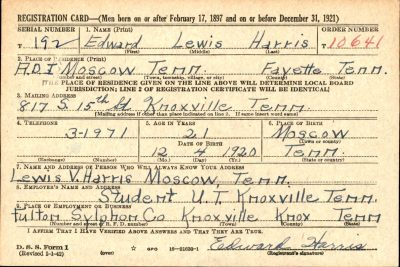 REGISTRATION CARD—(Men born on or after February 17, 1897 and on or before December 31, 1921)
SERIAL NUMBER 1. NAME (Print) ORDER NUMBER
T 192 Edward Lewis Harris T 10641
(First) (Middle) (Last)
2. PLACE OF RESIDENCE (Print)
R.D.I Moscow Tenn. Fayette Tenn.
(Town, township, village, or city) (County) (State)
[THE PLACE OF RESIDENCE GIVEN ON THE LINE ABOVE WILL DETERMINE LOCAL BOARD
JURISDICTION; LINE 2 OF REGISTRATION CERTIFICATE WILL BE IDENTICAL]
3. MAILING ADDRESS
817 S. 15th St Knoxville Tenn.
[Mailing address if other than place indicated on line 2. If same insert word same]
4. TELEPHONE 5. AGE IN YEARS 6. PLACE OF BIRTH
3-1971 21 Moscow
DATE OF BIRTH (Town or county)
12 4 1920 Tenn
(Exchange) (Number) (Mo.) (Day) (Yr.) (State or country)
7. NAME AND ADDRESS OF PERSON WHO WILL ALWAYS KNOW YOUR ADDRESS
Lewis V. Harris Moscow, Tenn.
8. EMPLOYER'S NAME AND ADDRESS
Student U.T. Knoxville Tenn.
9. PLACE OF EMPLOYMENT OR BUSINESS
Fulton Sylphon Co Knoxville Knox Tenn
(Number and street or R. F. D. number) (Town) (County) (State)
I AFFIRM THAT I HAVE VERIFIED ABOVE ANSWERS AND THAT THEY ARE TRUE.
D. S. S. Form 1 GPO 16—21630-1 Edward Harris
(Revised 1-1-42) (over) (Registrant's signature)